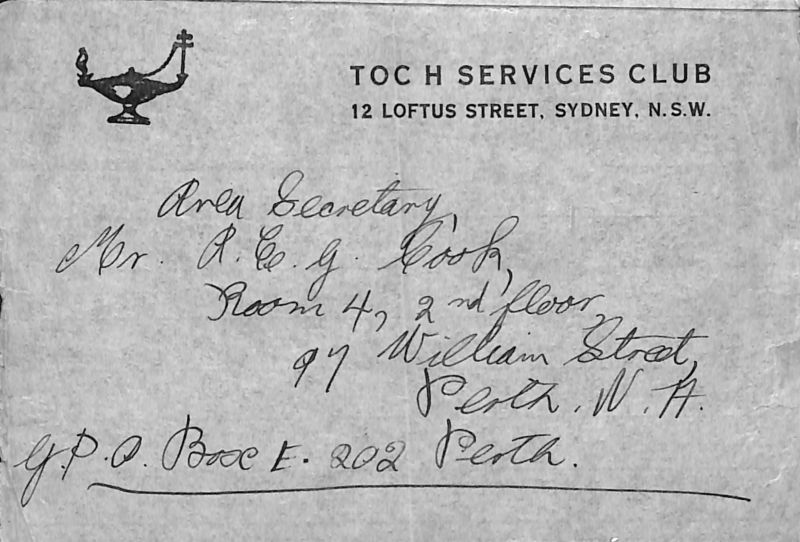 TOC H SERVICES CLUB
12 LOFTUS STREET, SYDNEY, N.S.W.
Area Secretary,
Mr. R. E. G. Cook,
Room 4, 2nd floor,
97 William Street,
Perth. W. A.
G.P.O. Box E. 202 Perth.